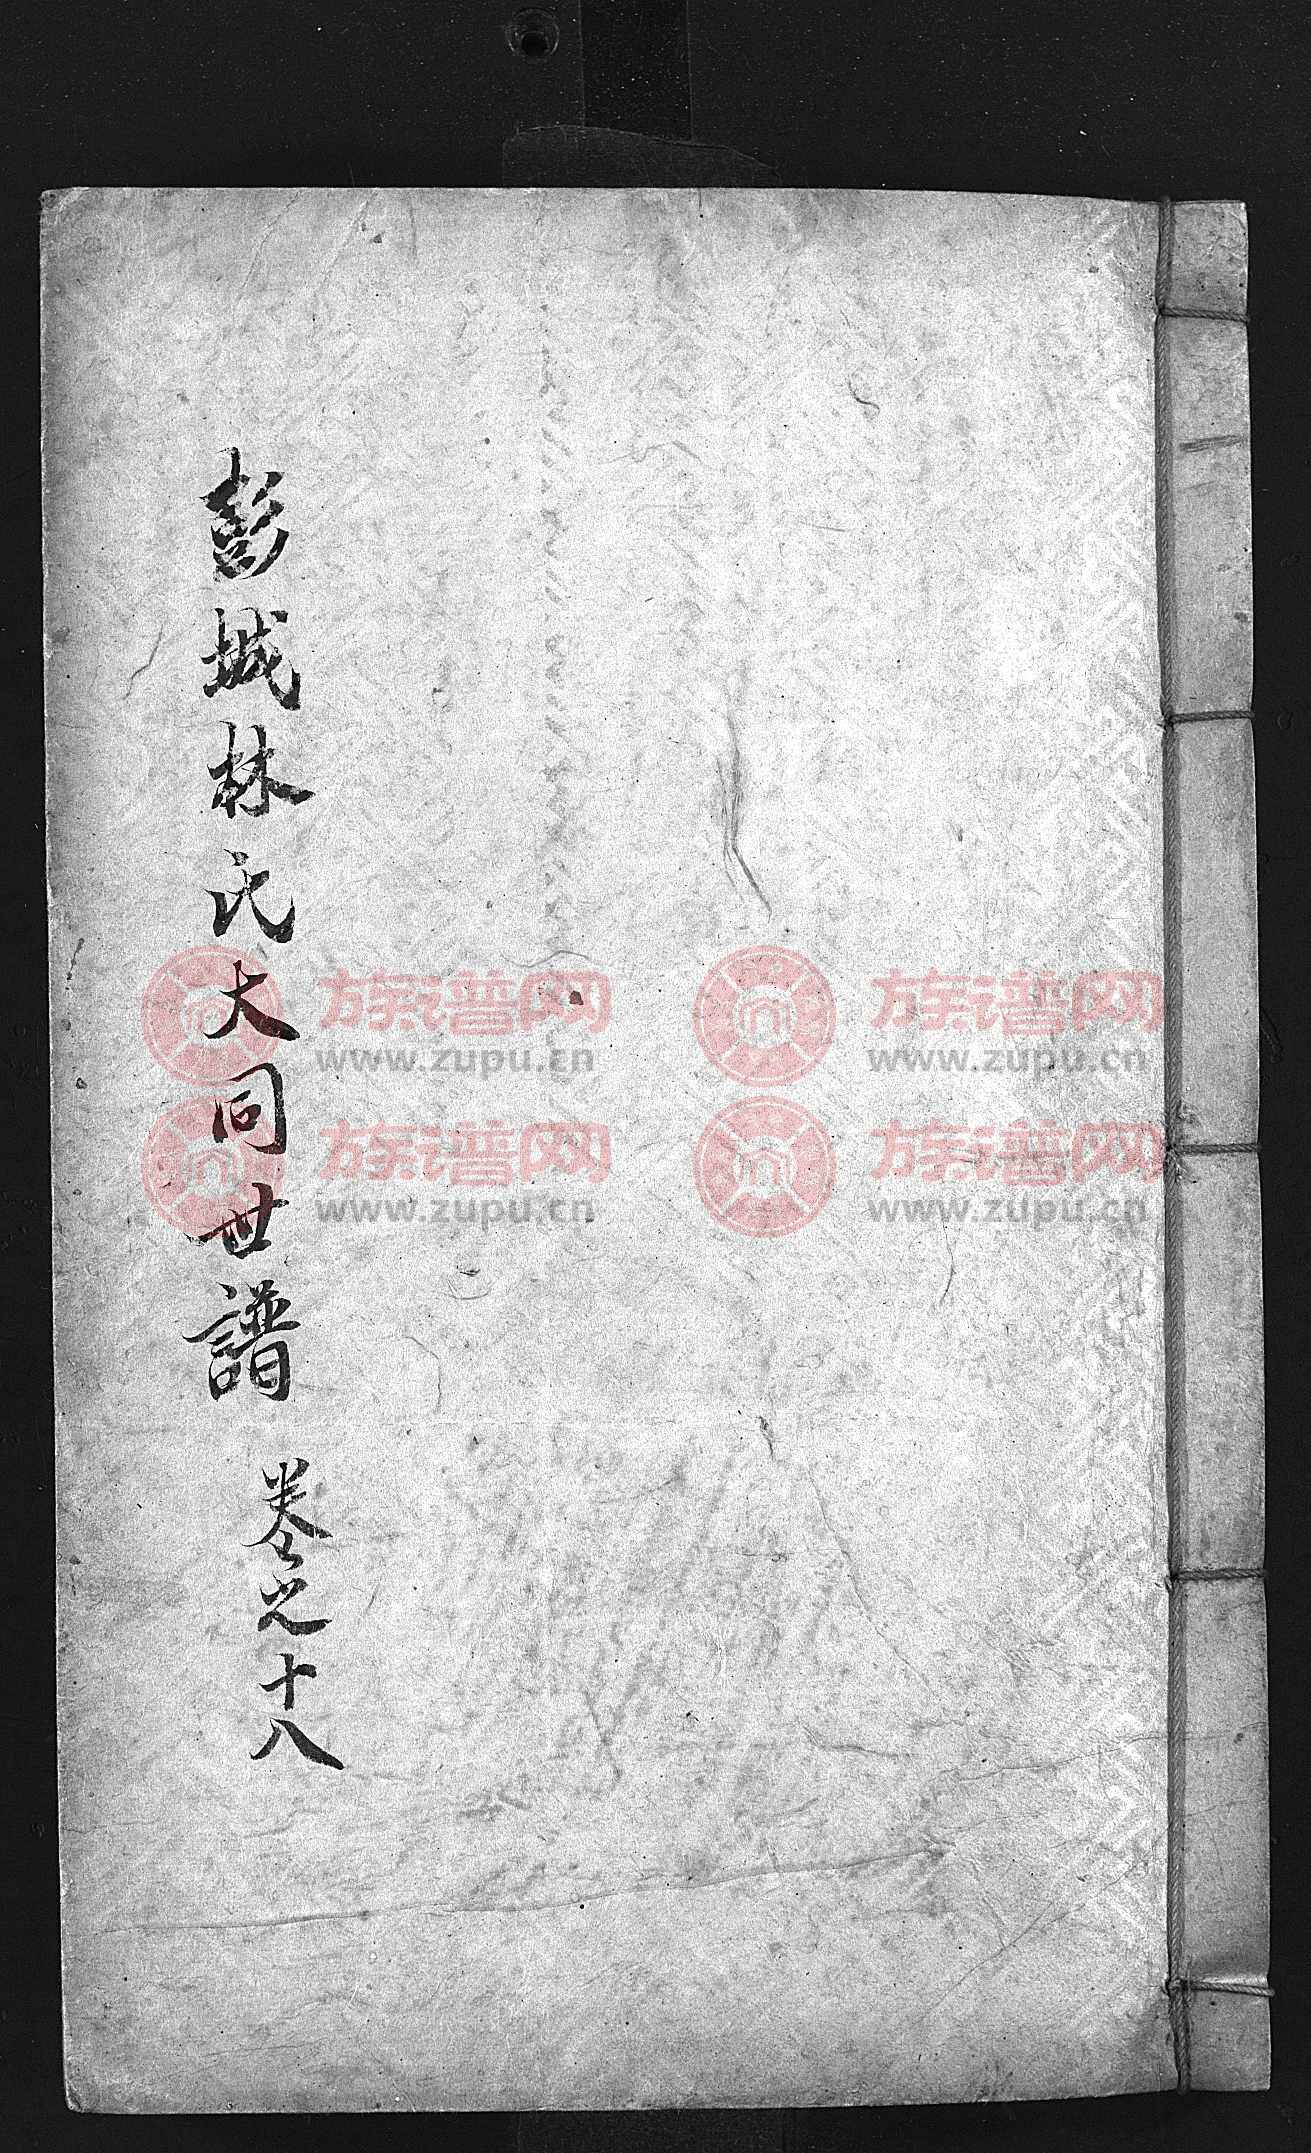 彭城林氏大同世譜
卷之十八
族谱网
www.zupu.cn
族谱网
www.zupu.cn
族谱网
www.zupu.cn
族谱网
www.zupu.cn